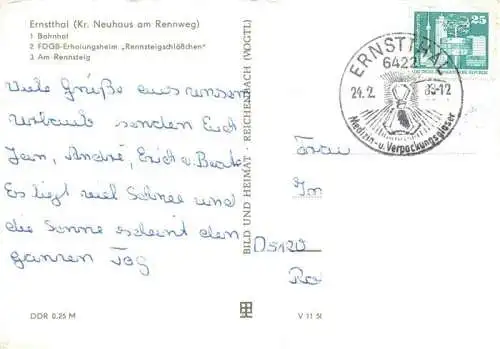 Ernstthal (Kr. Neuhaus am Rennweg)
1 Bahnhof
2 FDGB-Erholungsheim „Rennsteigschlößchen"
3 Am Rennsteig
Viele Grüße aus unserem
Urlaub senden Euch
Jan, André, Erich u. Beate
Es liegt viel Schnee und
die Sonne scheint den
ganzen Tag
BILD UND HEIMAT · REICHENBACH (VOGTL)
ERNSTTHAL
6422
24.2.
-12
Medizin-u. Verpackungsgläser
25
Frau
DDR 0,25 M
V 11 50